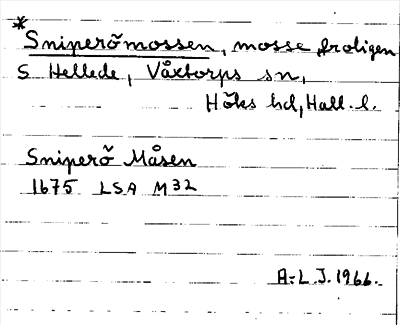 *
Sniperömossen, mosse, troligen
S Hellede, Våxtorps sn,
Höks hd, Hall. l.
Sniperö Måsen
1675 LSA M32
A-L J. 1966.